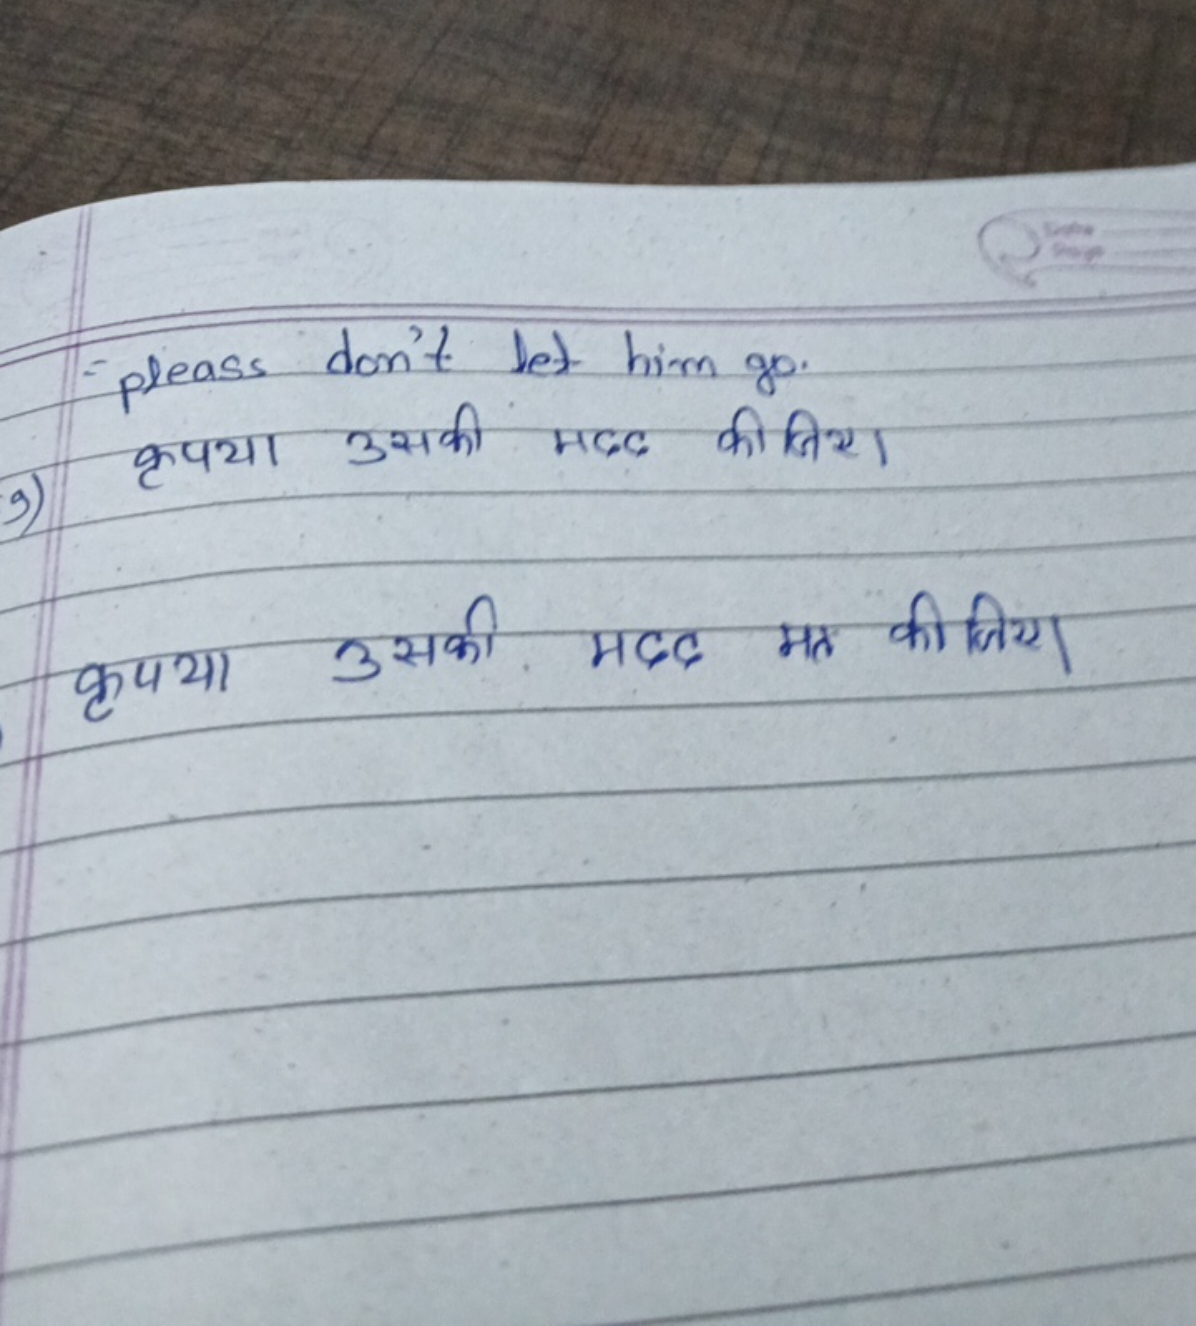 = pleass don't let him go.
कृपया उसकी मदद कीजिए।
9)
कृपया उसकी मदद मत कीजिए।